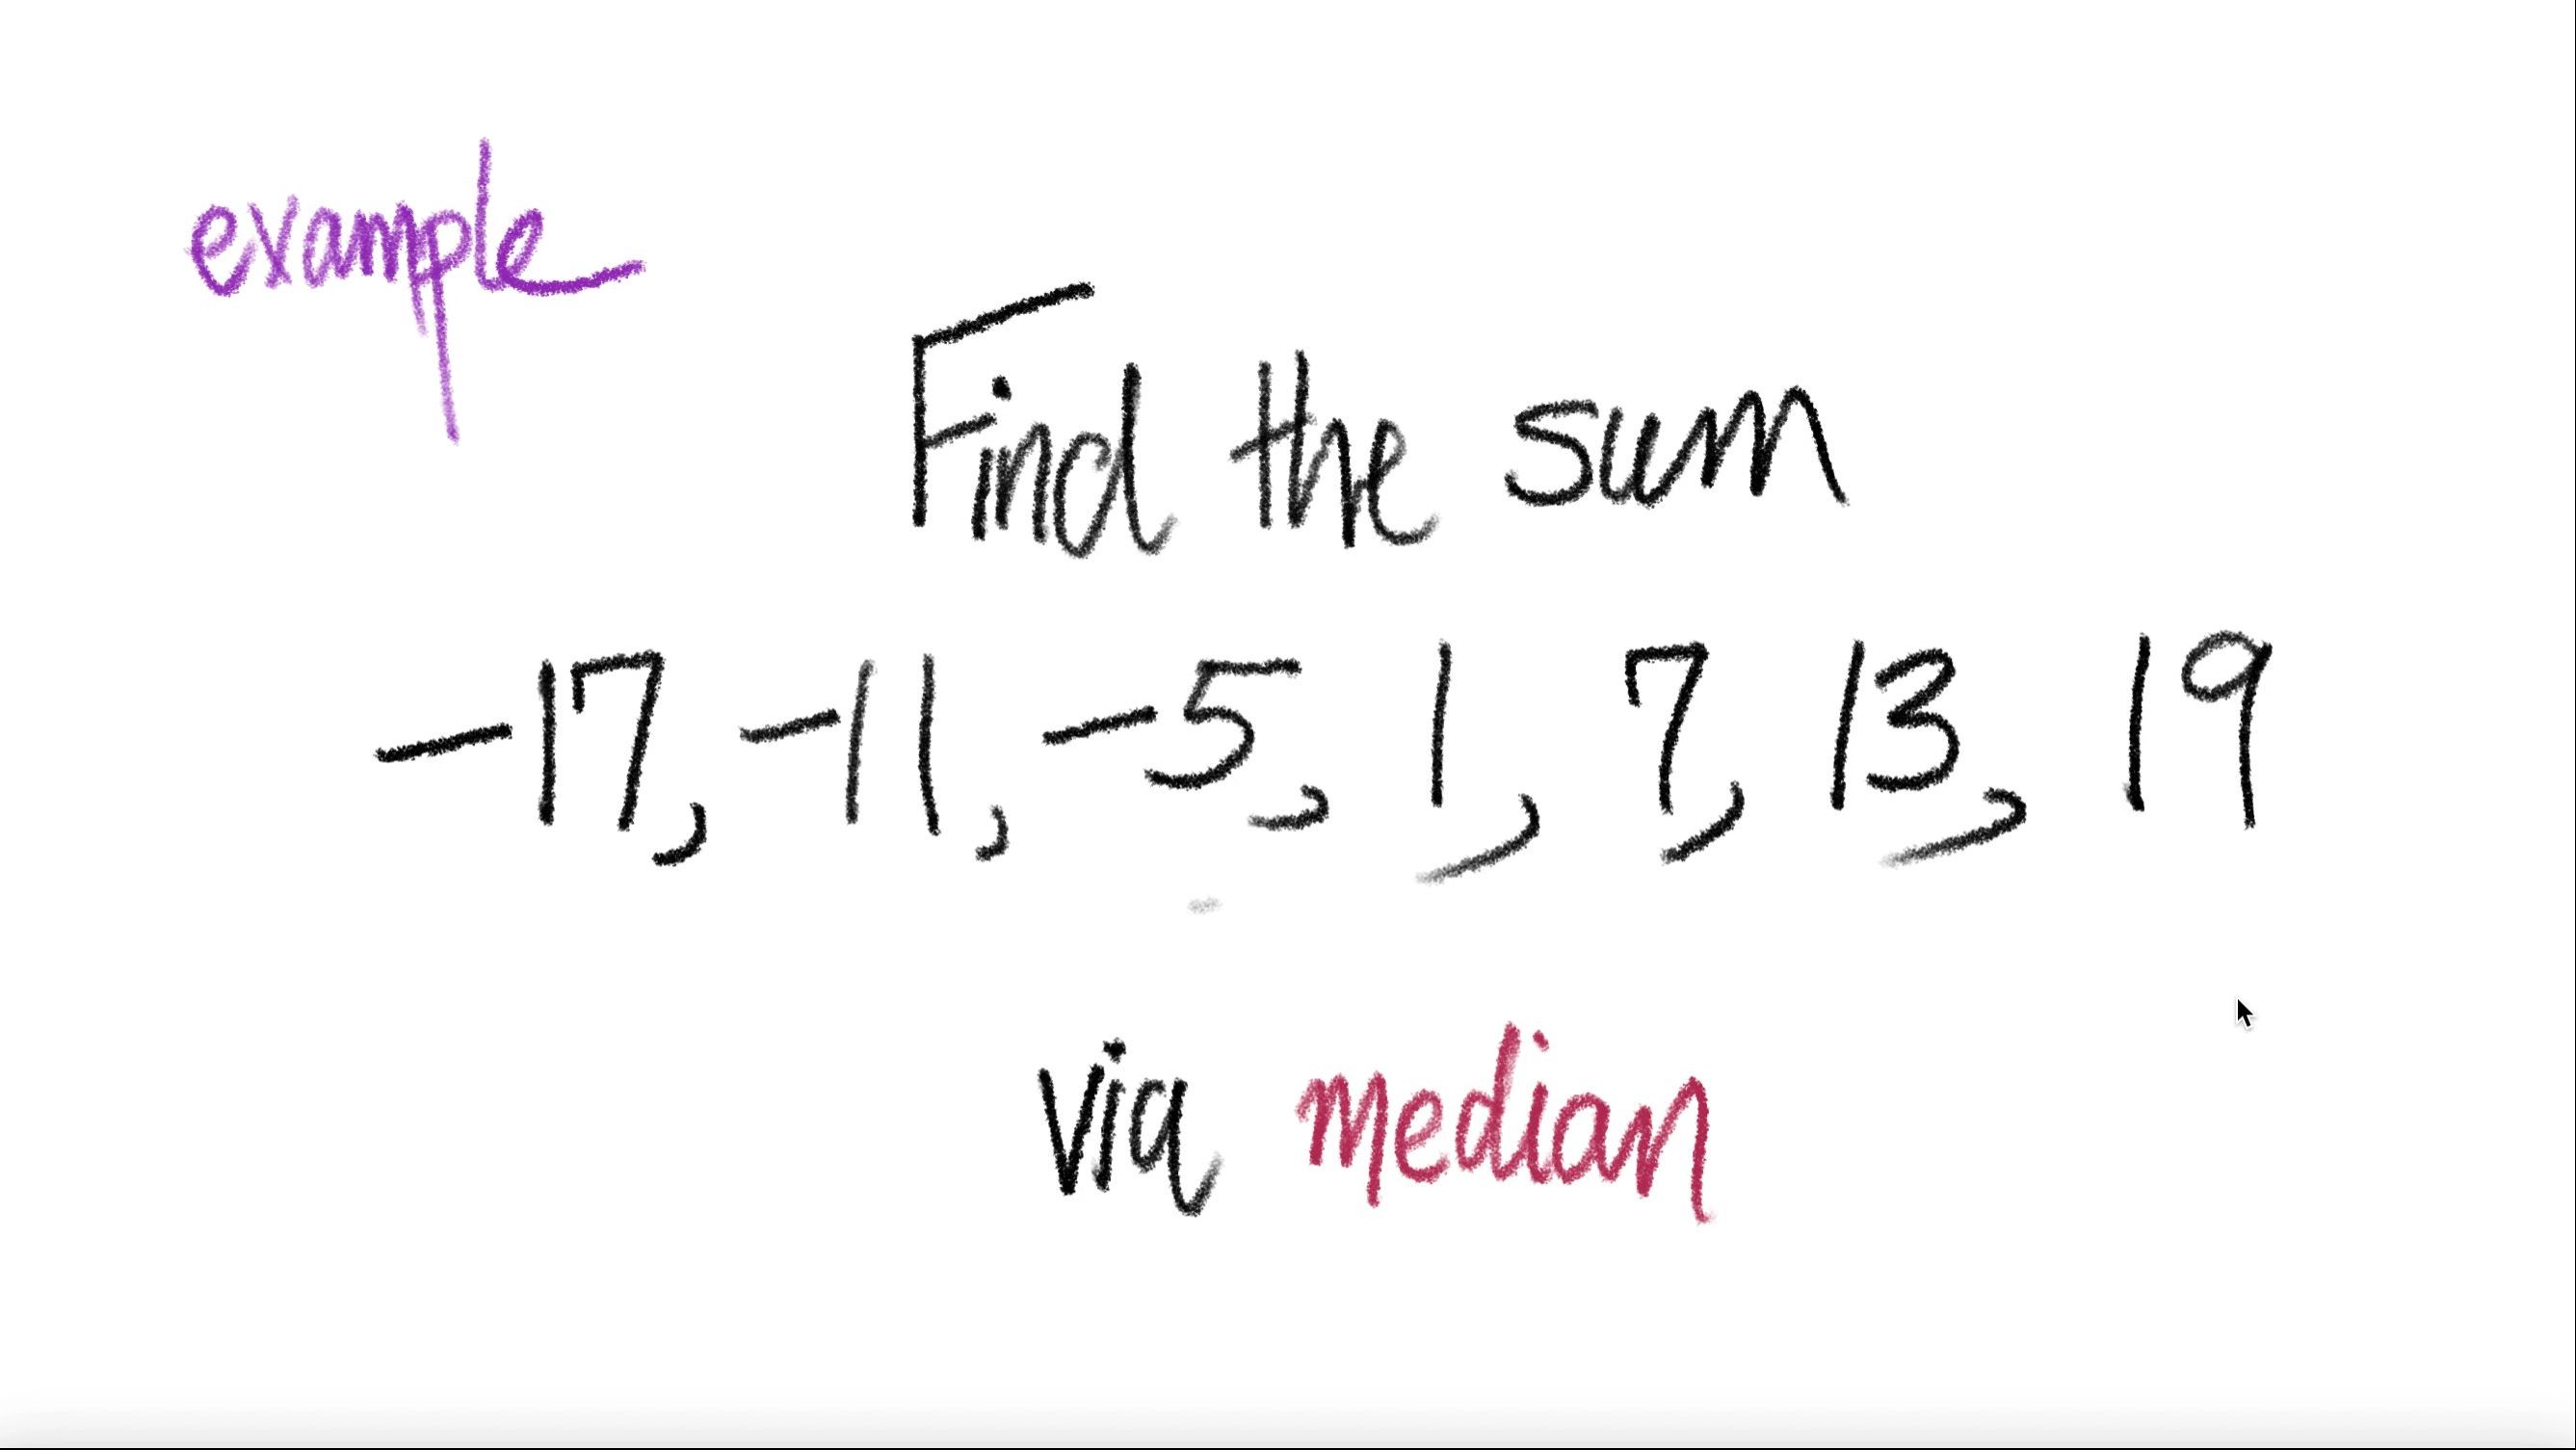 example
Find the sum
-17, -11, -5, 1, 7, 13, 19
via median